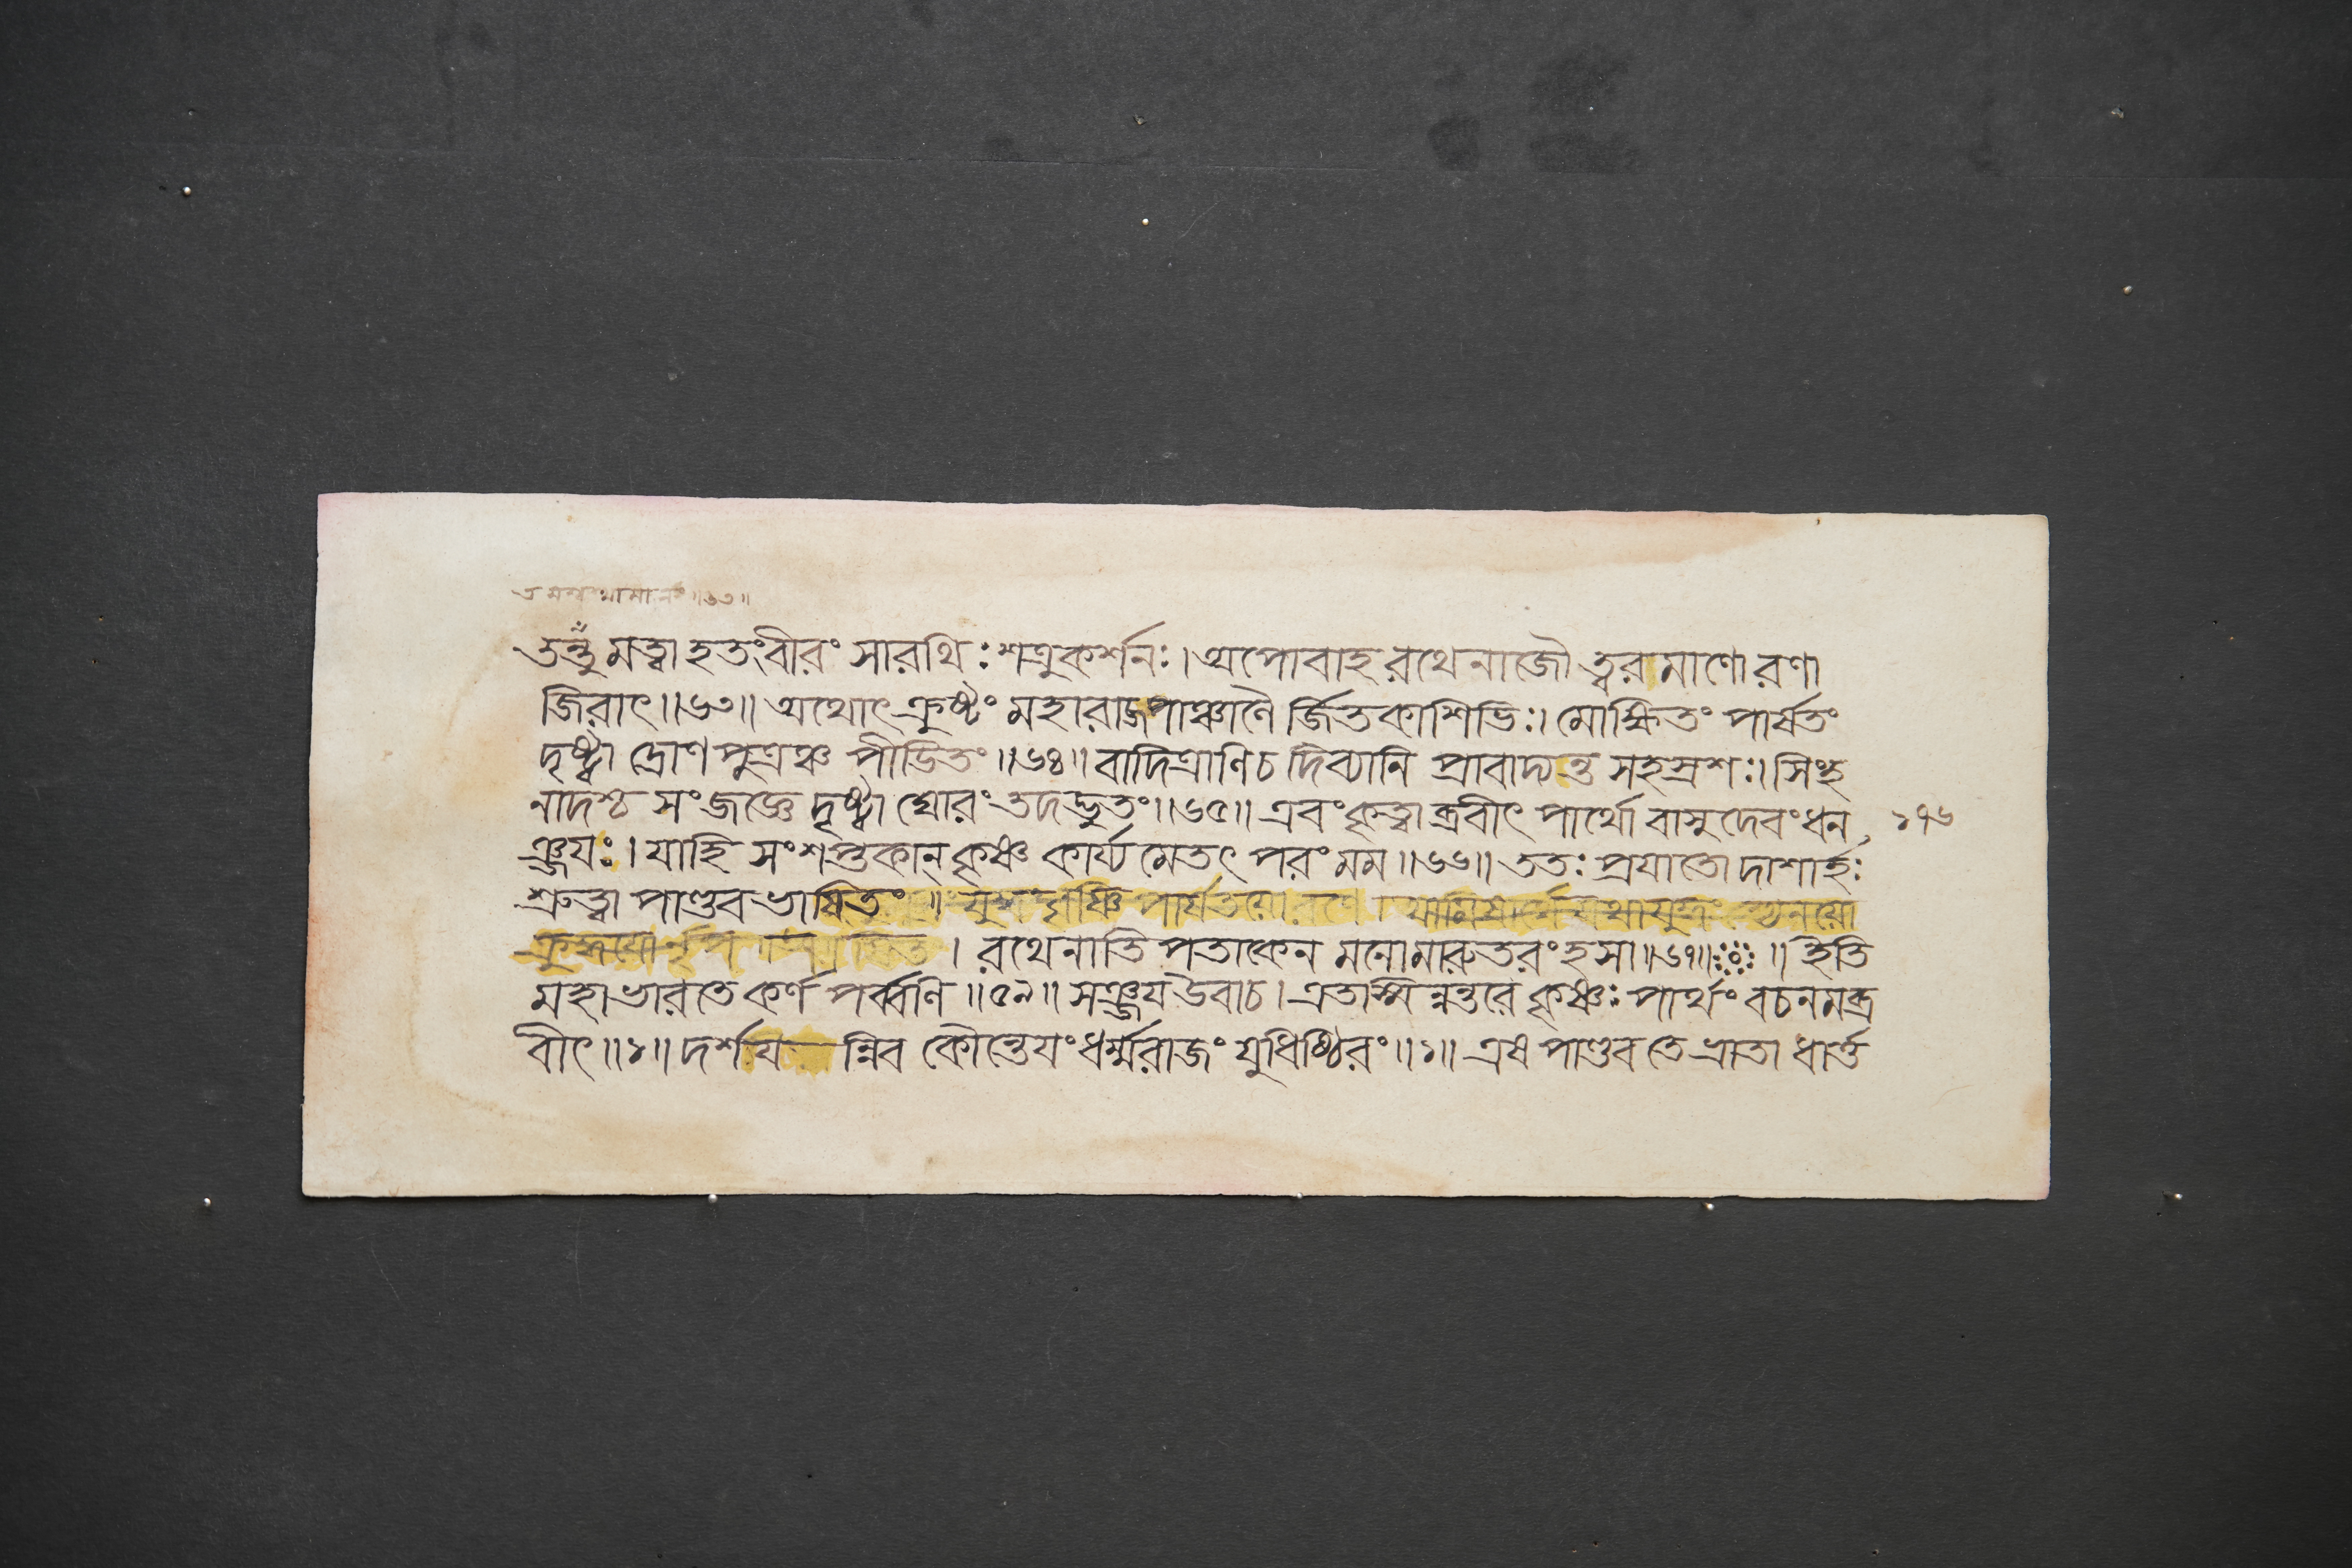 তন্তু মত্বা হতং বীরং সারথিঃ শত্রুকর্শনঃ। অপোবাহ রথেনাজৌ ত্বরমাণো রণা
জিরাৎ॥৬৩॥ অথোৎক্রুষ্টং মহারাজ পাঞ্চালৈ র্জিতকাশিভিঃ। মোক্ষিতং পার্ষতং
দৃষ্ট্বা দ্রোণপুত্রঞ্চ পীডিতং॥৬৪॥ বাদিত্রাণি চ দিব্যানি প্রাবাদ্যন্ত সহস্রশঃ। সিংহ
নাদশ্চ সংজজ্ঞে দৃষ্ট্বা ঘোরং তদদ্ভুতং॥৬৫॥ এবং কৃত্বা ব্রবীৎ পার্থো বাসুদেবং ধন
১৭৬
ঞ্জযঃ। যাহি সংশপ্তকান্ কৃষ্ণ কার্য্য মেতৎ পরং মম॥৬৬॥ ততঃ প্রযাতো দাশার্হঃ
শ্রুত্বা পাণ্ডবভাষিতং॥
। রথেনাতি পতাকেন মনোমারুতরংহসা॥৬৭॥ ॥ ইতি
মহাভারতে কর্ণ পর্ব্বণি॥৫৯॥ সঞ্জয উবাচ। এতস্মি ন্নন্তরে কৃষ্ণঃ পার্থং বচনমব্র
বীৎ॥১॥ দর্শয ন্নিব কৌন্তেযং ধর্ম্মরাজং যুধিষ্ঠিরং॥১॥ এষ পাণ্ডব তে ভ্রাতা ধার্ত্ত